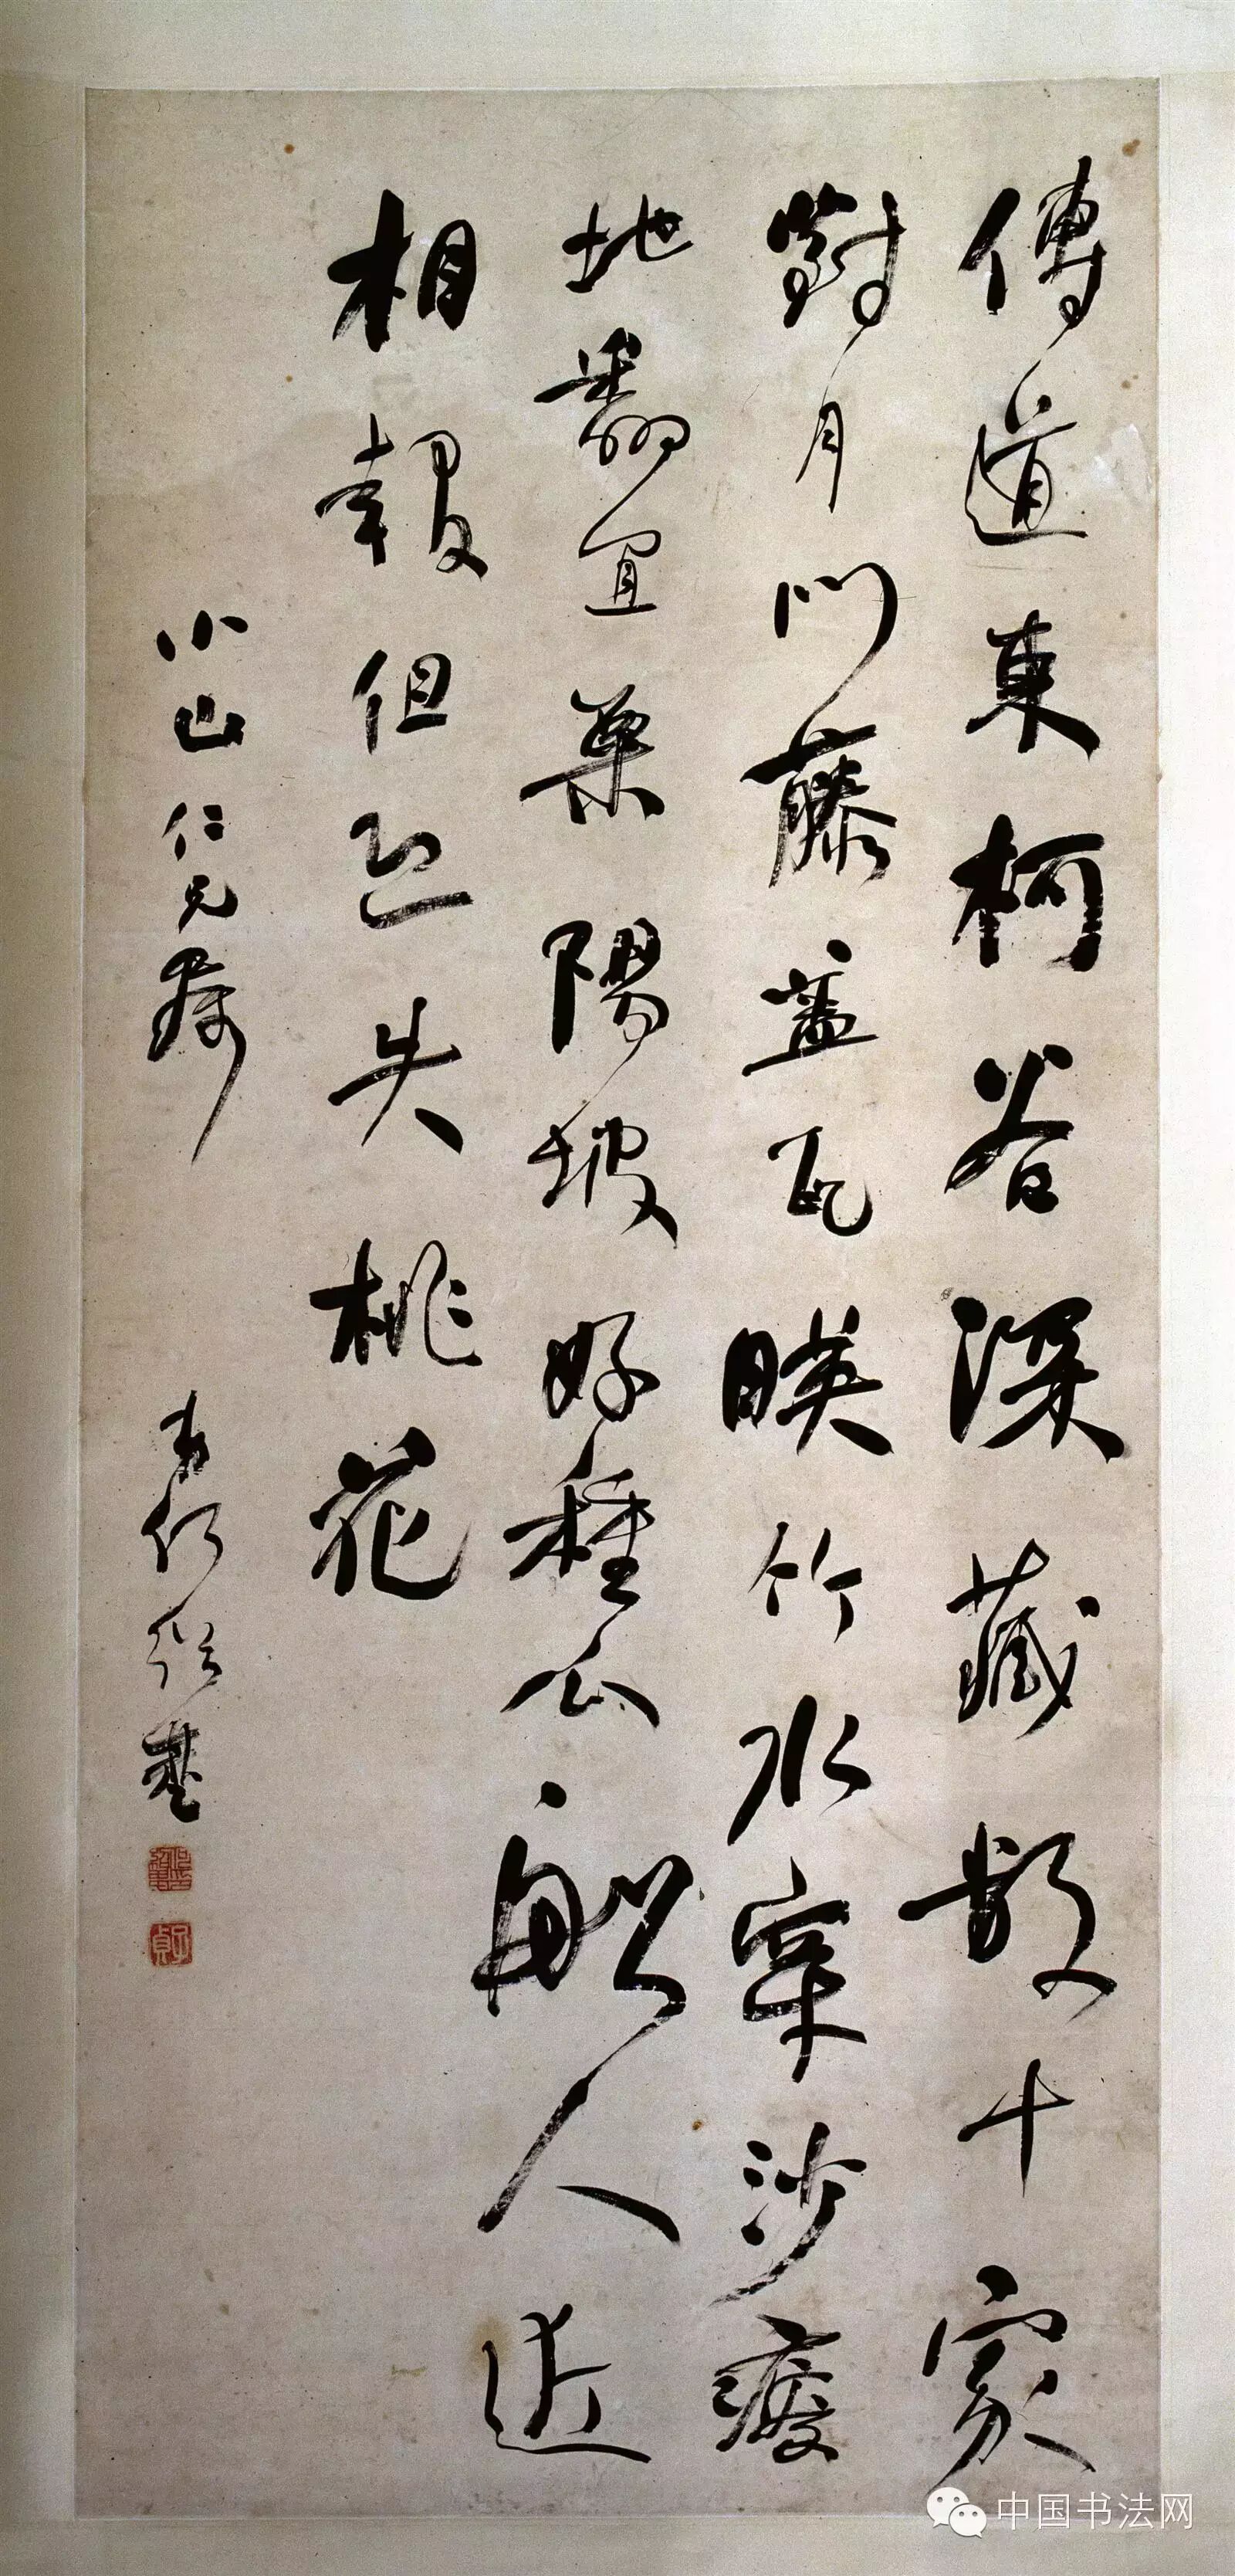 傳道東柯谷深藏數十家
對月門藤蓋瓦暎竹水穿沙瘦
地翻宜粟陽坡好種瓜船人近
相報但恐失桃花
小山仁兄屬
弟何紹基
子貞
中国书法网